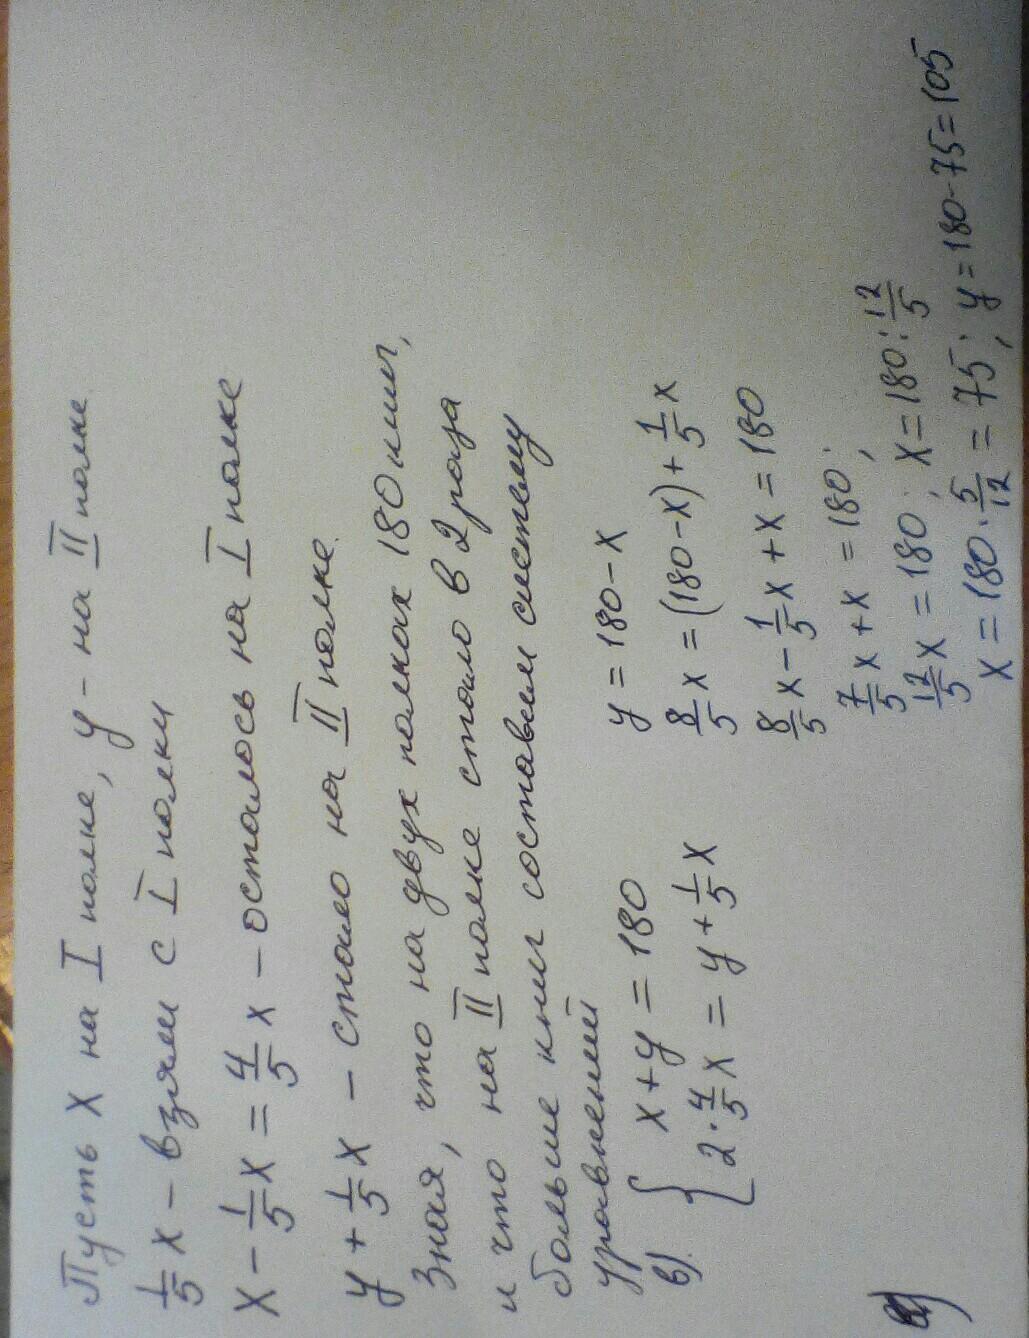 Пусть x на I полке, y - на II полке
1/5 x - взяли с I полки
x - 1/5 x = 4/5 x - осталось на I полке
y + 1/5 x - стало на II полке.
Зная, что на двух полках 180 книг,
и что на II полке стало в 2 раза
больше книг составим систему
уравнений
в). { x + y = 180
2 · 4/5 x = y + 1/5 x
y = 180 - x
8/5 x = (180 - x) + 1/5 x
8/5 x - 1/5 x + x = 180
7/5 x + x = 180;
12/5 x = 180; x = 180 : 12/5
x = 180 · 5/12 = 75; y = 180 - 75 = 105